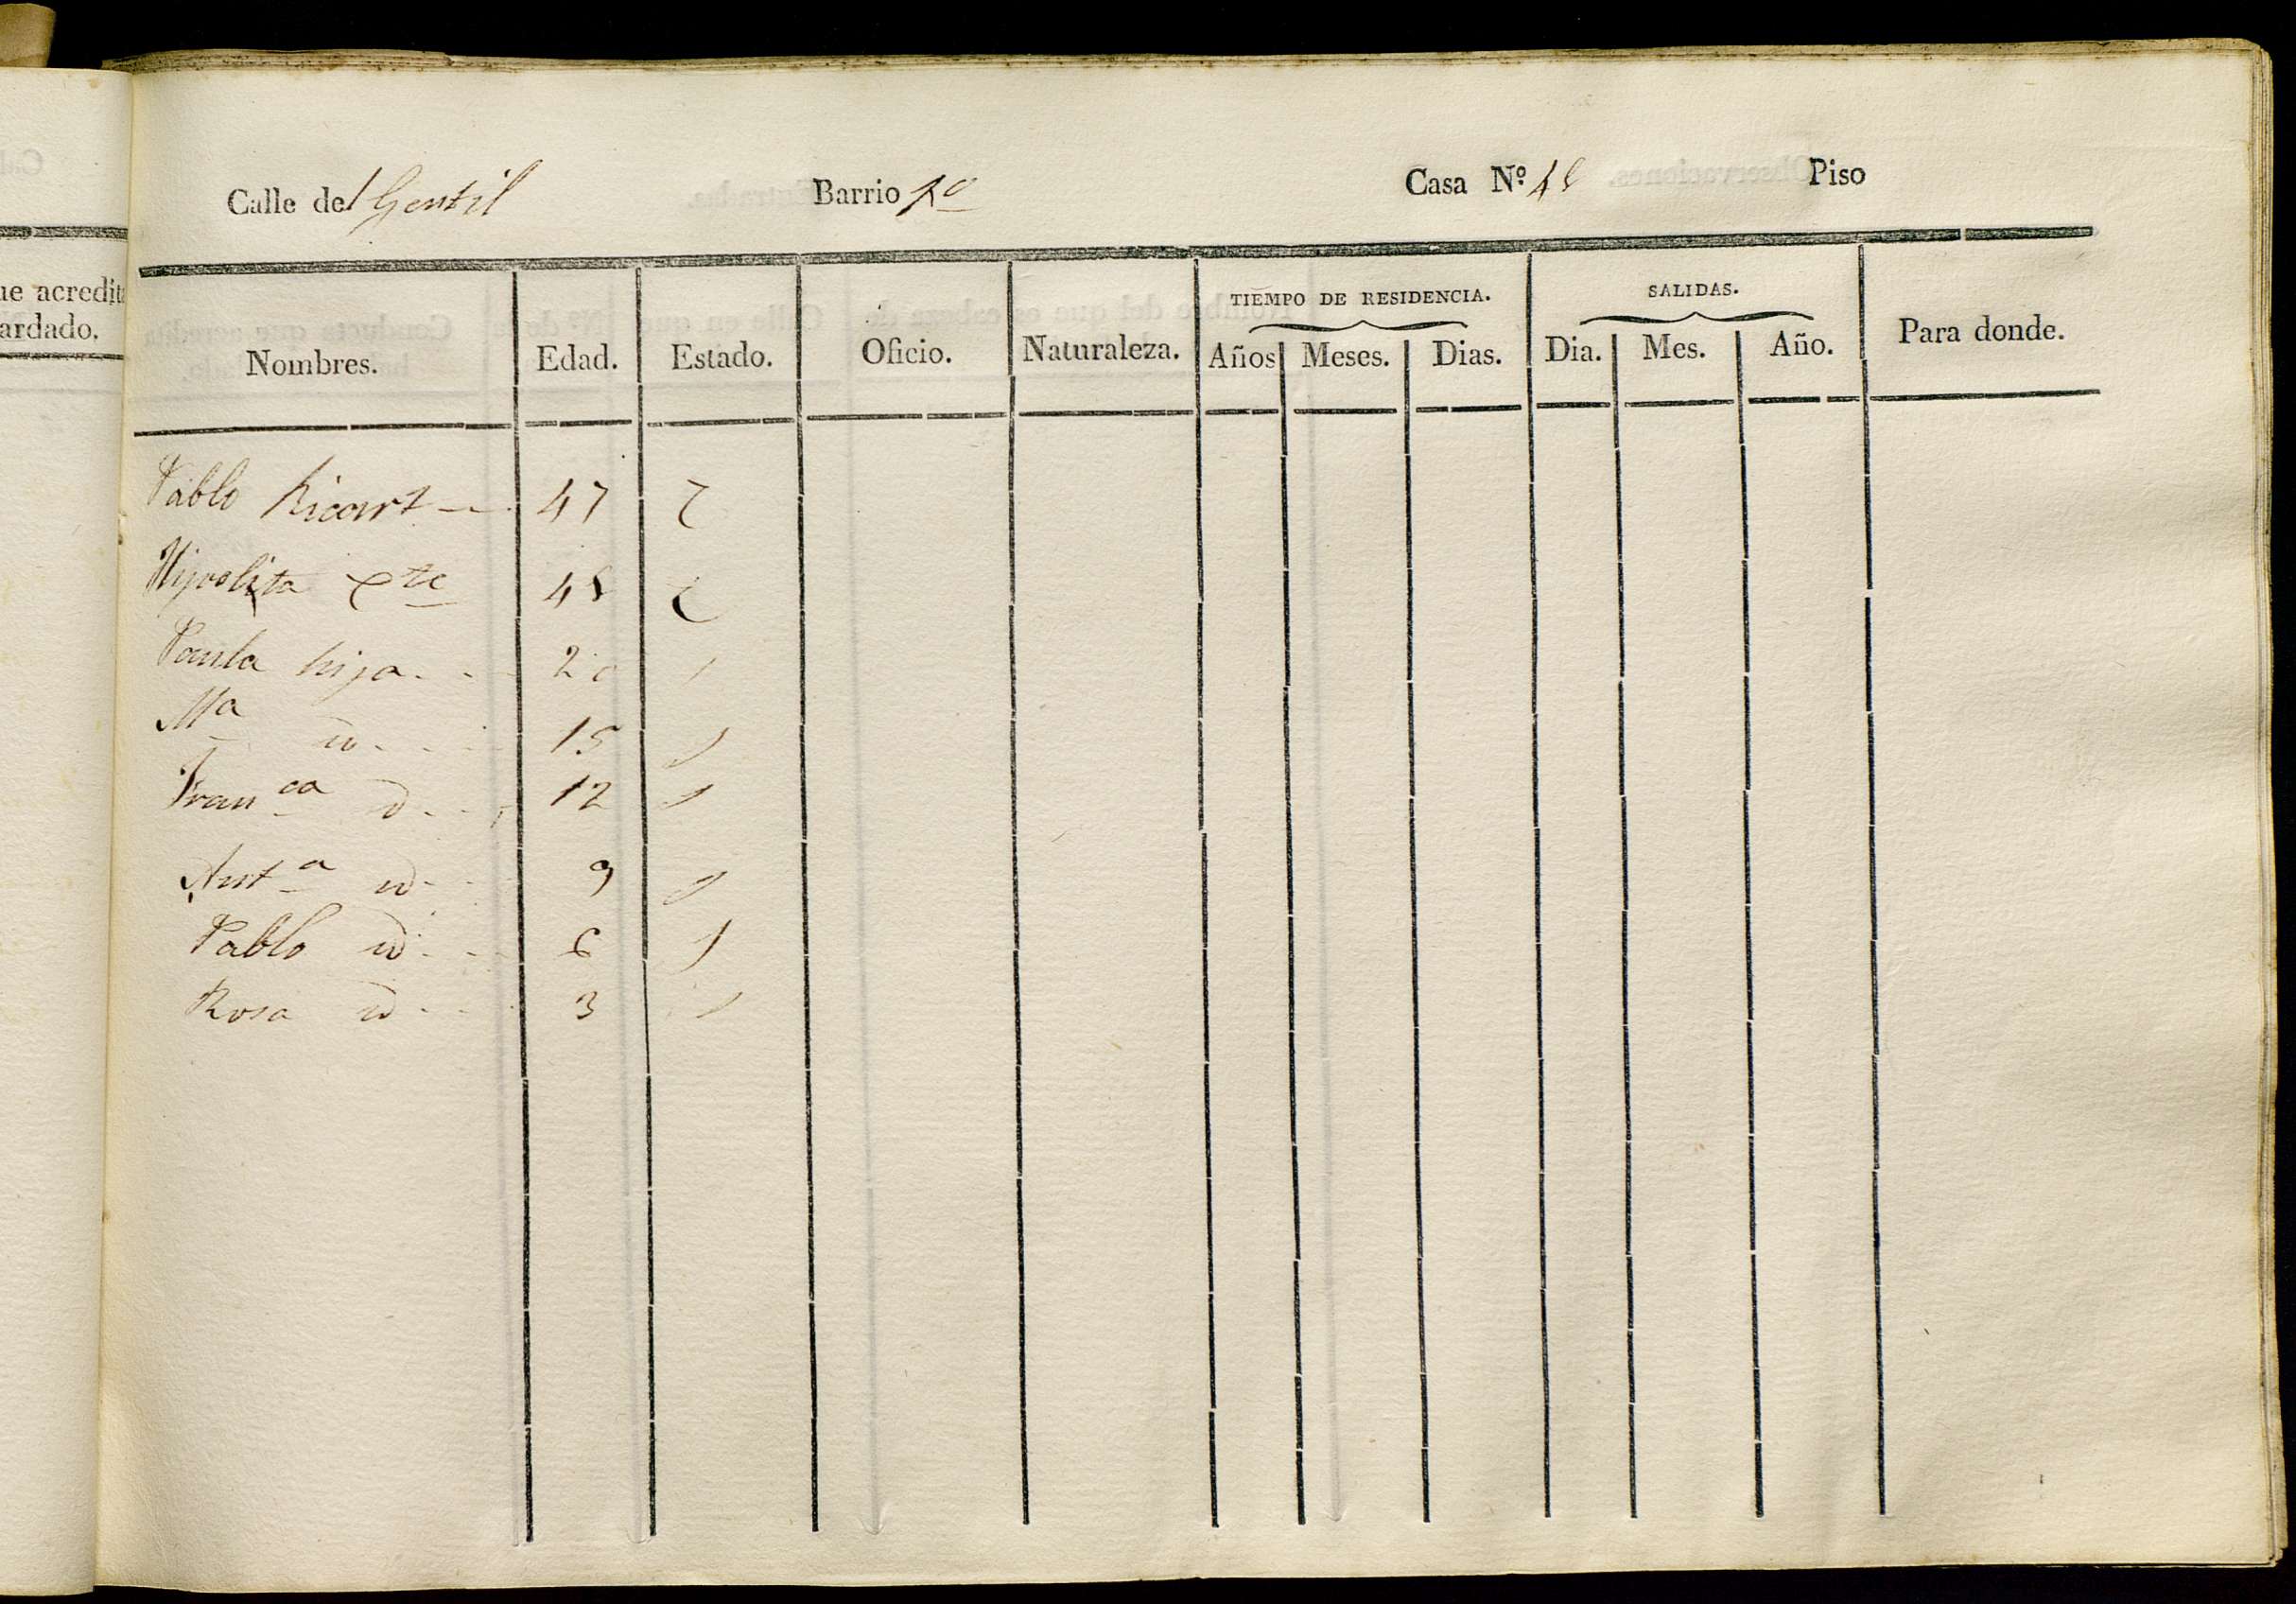 ue acredita
ardado.
Calle del Gentil Barrio 1º Casa N.º 48 Piso
Nombres. Edad. Estado. Oficio. Naturaleza. TIEMPO DE RESIDENCIA. SALIDAS. Para donde.
Años Meses. Dias. Dia. Mes. Año.
Pablo Ricart 47
Hipolita 48
Paula hija 20
Mª id 15
Franca id 12
Antª id 9
Pablo id 6
Rosa id 3